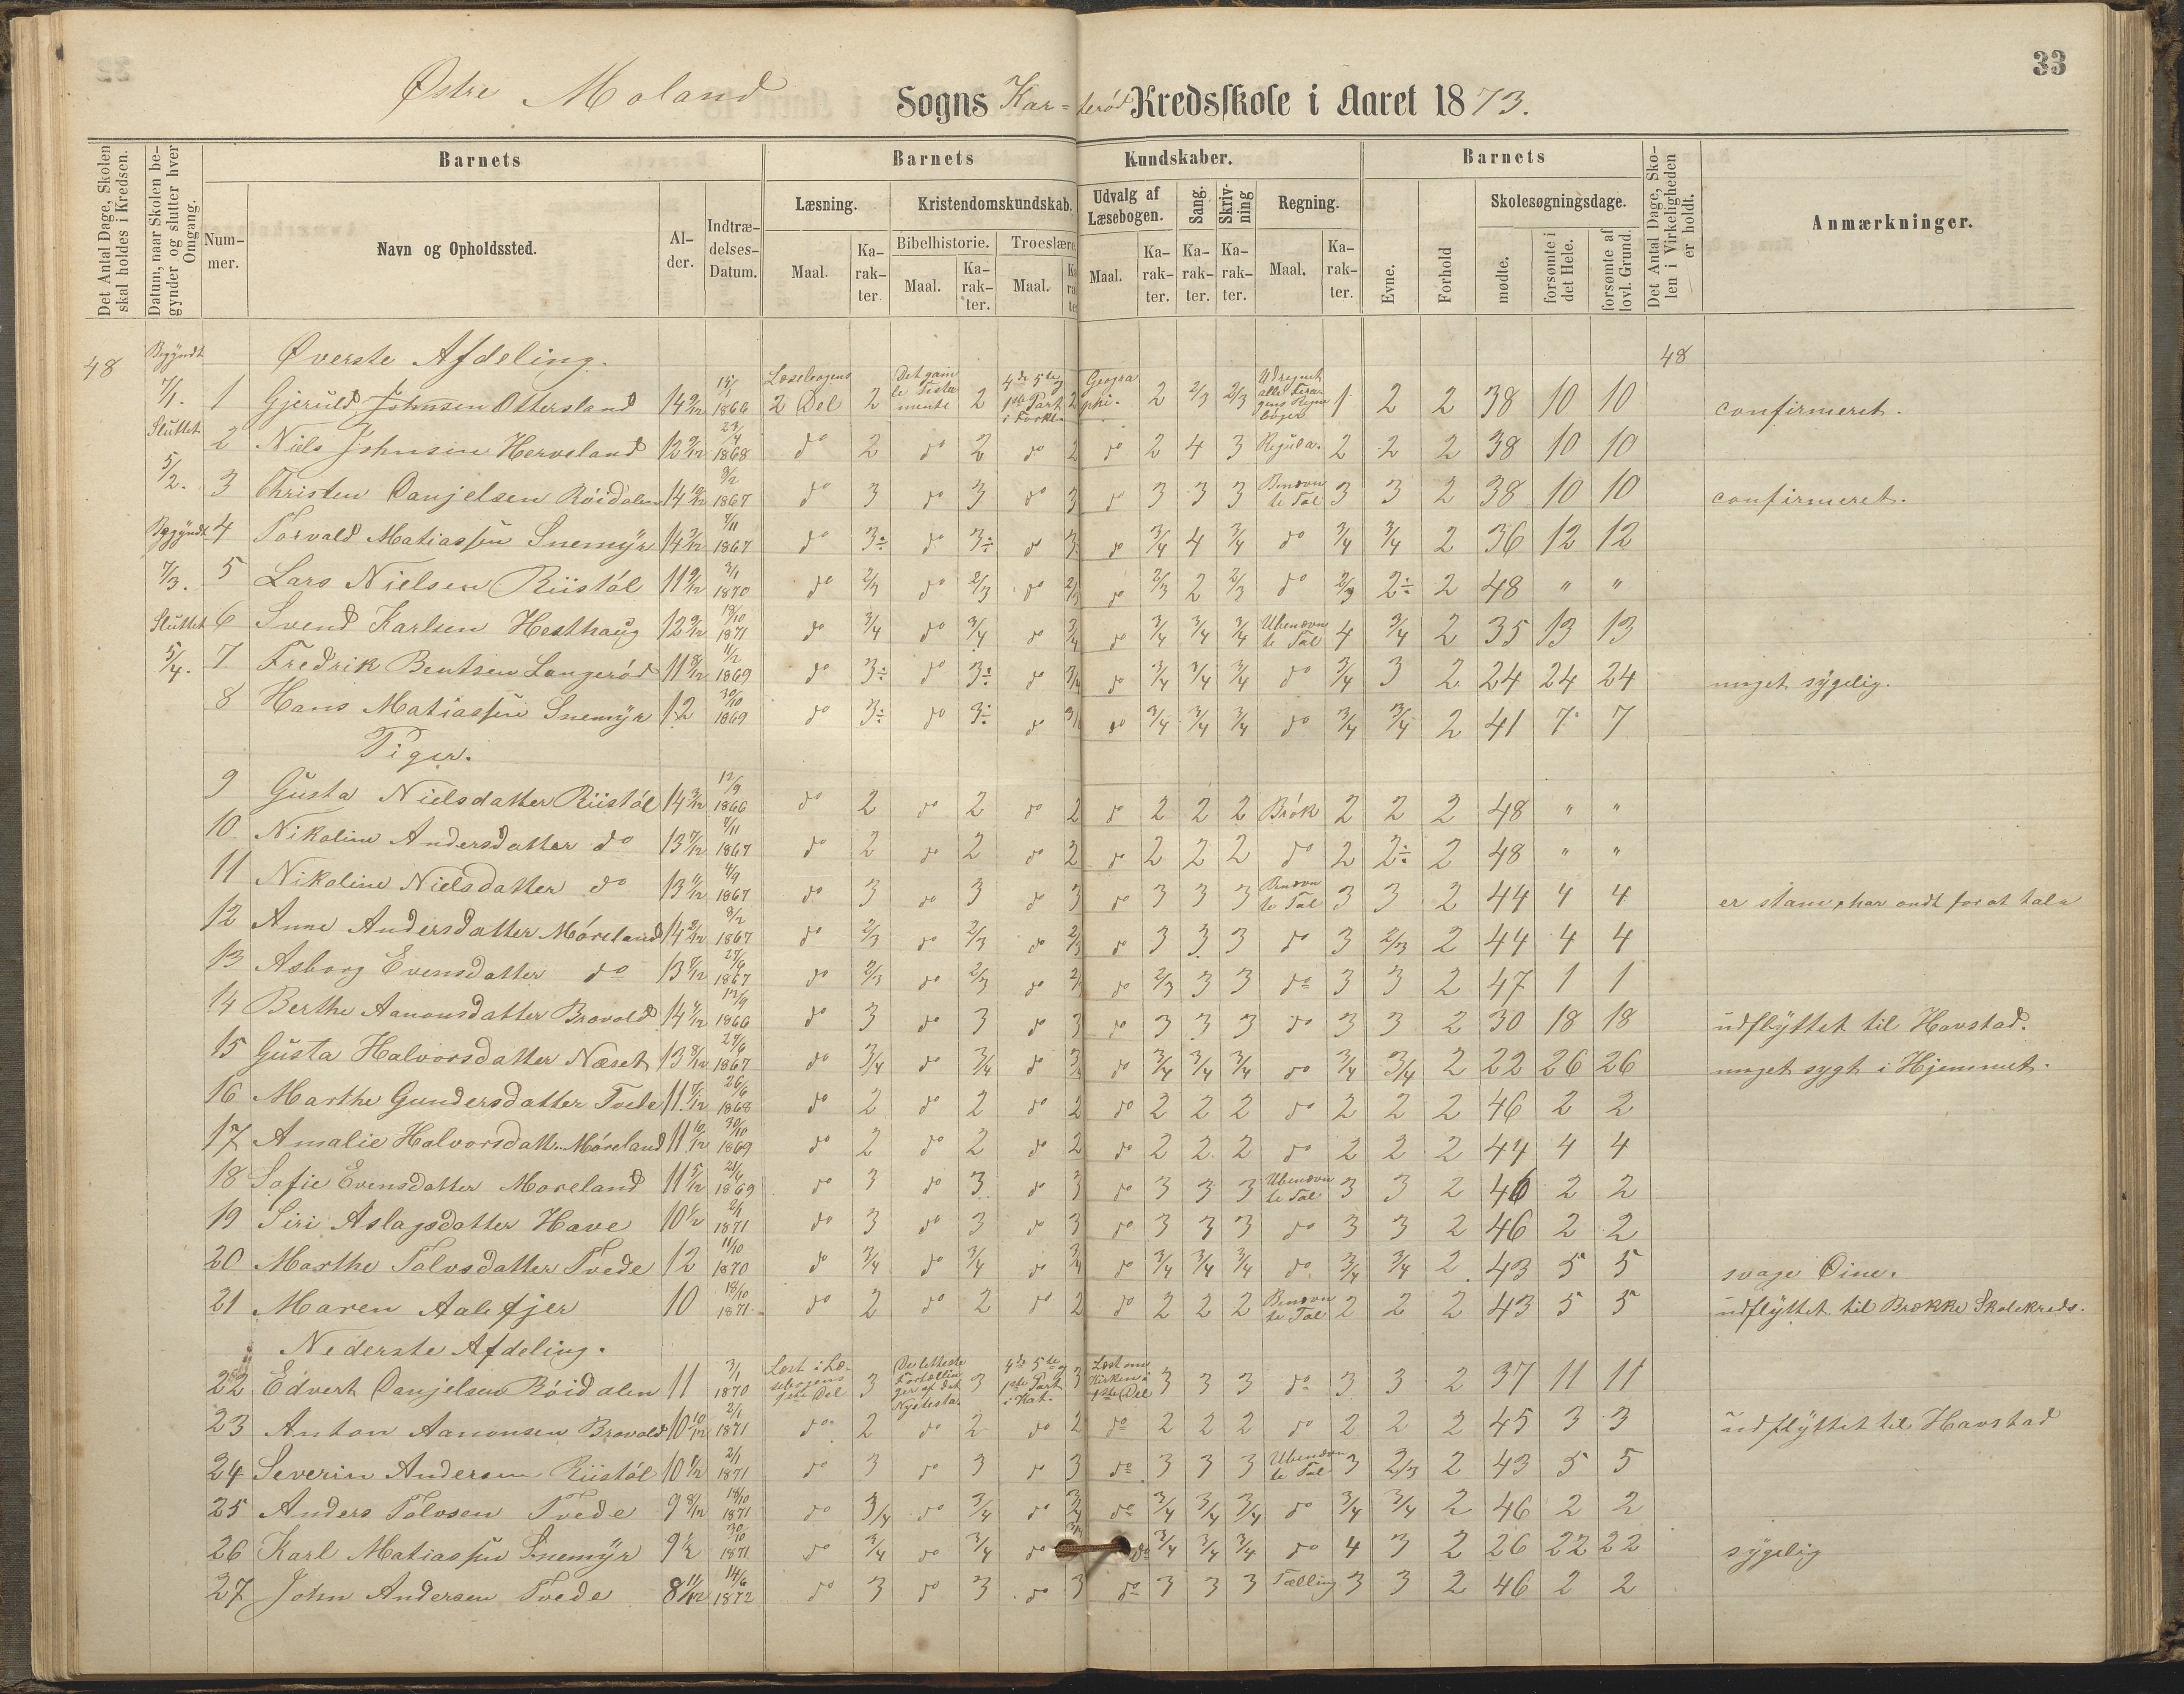 33
Østre Moland Sogns Kar=terød Kredsskole i Aaret 1873.
Det Antal Dage, Skolen skal holdes i Kredsen.
Datum, naar Skolen begynder og slutter hver Omgang.
Barnets
Nummer.
Navn og Opholdssted.
Alder.
Indtrædelses-Datum.
Barnets Kundskaber.
Læsning.
Maal.
Karakter.
Kristendomskundskab.
Bibelhistorie.
Maal.
Karakter.
Troeslære.
Maal.
Karakter
Udvalg af Læsebogen.
Maal.
Karakter.
Sang.
Karakter.
Skrivning
Karakter.
Regning.
Maal.
Karakter.
Barnets
Evne.
Forhold
Skolesøgningsdage.
mødte.
forsømte i det Hele.
forsømte af lovl. Grund.
Det Antal Dage, Skolen i Virkeligheden er holdt.
Anmærkninger.
48 Begyndt Øverste Afdeling. 48
7/1. 1 Gjeruld Johnsen Ottersland 14 9/12 15/ 1866 Læsebogens 2 Del 2 Det gamle Testamente 2 4de 5te og 1ste Part i Forkl. 2 Geographi. 2 2/3 2/3 Udregnet alle Regnebøger 1 2 2 38 10 10 confirmeret.
Sluttet 2 Niels Johnsen Herveland 12 9/12 23/4 1868 do 2 do 2 do 2 do 2 4 3 Regula. 2 2 2 38 10 10
5/2. 3 Thristen Danjelsen Röidalen 14 10/12 9/2 1867 do 3 do 3 do 3 do 3 3 3 Benævnte Tal 3 3 2 38 10 10 confirmeret.
Begyndt 4 Torvald Matiassen Snemÿr 14 3/12 7/11 1867 do 3÷ do 3÷ do 3 do 3/4 4 3/4 do 3/4 3/4 2 36 12 12
7/3. 5 Lars Nielsen Riistöl 11 9/12 3/1 1870 do 2/3 do 2/3 do 2/3 do 2/3 2 2/3 do 2/3 2÷ 2 48 " "
Sluttet 6 Svend Karlsen Hesthaug 12 9/12 18/10 1871 do 3/4 do 3/4 do 3/4 do 3/4 3/4 3/4 Ubenævnte Tal 4 3/4 2 35 13 13
5/4. 7 Fredrik Bentsen Langerød 11 8/12 11/2 1869 do 3÷ do 3÷ do 3/4 do 3/4 3/4 3/4 do 3/4 3 2 24 24 24 meget sÿgelig.
8 Hans Matiassen Snemÿr 12 30/10 1869 do 3÷ do 3÷ do 3/4 do 3/4 3/4 3/4 do 3/4 3/4 2 41 7 7
Piger.
9 Gusta Nielsdatter Riistöl 14 3/12 12/9 1866 do 2 do 2 do 2 do 2 2 2 Brök 2 2 2 48 " "
10 Nikoline Andersdatter do 13 7/12 7/11 1867 do 2 do 2 do 2 do 2 2 2 do 2 2÷ 2 48 " "
11 Nikoline Nielsdatter do 13 11/12 4/9 1867 do 3 do 3 do 3 do 3 3 3 Benævnte Tal 3 3 2 44 4 4 er stam, har ondt for at tale
12 Anne Andersdatter Möreland 14 2/12 9/2 1867 do 2/3 do 2/3 do 2/3 do 3 3 3 do 3 2/3 2 44 4 4
13 Asborg Evensdatter do 13 8/12 27/6 1867 do 2/3 do 2/3 do 2/3 do 2/3 3 3 do 3 3 2 47 1 1
14 Berthe Aanonsdatter Brovold 14 4/12 12/9 1866 do 3 do 3 do 3 do 3 3 3 do 3 3 2 30 18 18 udflÿttet til Havstad.
15 Gusta Halvorsdatter Næset 13 8/12 27/6 1867 do 3/4 do 3/4 do 3/4 do 3/4 3/4 3/4 do 3/4 3/4 2 22 26 26 meget sygt i Hjemmet.
16 Marthe Gundersdatter Tvede 11 7/12 26/6 1868 do 2 do 2 do 2 do 2 2 2 do 2 2 2 46 2 2
17 Amalie Halvorsdatt. Möreland 11 10/12 30/10 1869 do 2 do 2 do 2 do 2 2 2 do 2 2 2 44 4 4
18 Sofie Evensdatter Moreland 11 5/12 21/6 1869 do 3 do 3 do 3 do 3 3 3 Ubenævnte Tal 3 3 2 46 2 2
19 Siri Aslagsdatter Have 10 1/2 2/1 1871 do 3 do 3 do 3 do 3 3 3 do 3 3 2 46 2 2
20 Marthe Tolvsdatter Tvede 12 11/10 1870 do 3/4 do 3/4 do 3/4 do 3/4 3/4 3/4 do 3/4 3/4 2 43 5 5 svage Öine.
21 Maren Aalefjer 10 18/10 1871 do 2 do 2 do 2 do 2 2 2 Benævnte Tal 2 2 2 43 5 5 udflÿttet til Brække Skolekreds.
Nederste Afdeling.
22 Edvert Danjelsen Röidalen 11 3/1 1870 Læst i Læsebogens 1ste Del 3 De letteste Fortællinger af det Nye testa. 3 4de 5te og 1ste Part i Kat. 3 Læst om Kirken i 1ste Del 3 3 3 do 3 3 2 37 11 11
23 Anton Aanonsen Brovold 10 10/12 2/1 1871 do 2 do 2 do 2 do 2 2 2 do 2 2 2 45 3 3 udflÿttet til Havstad
24 Severin Andersen Riistöl 10 8/12 2/1 1871 do 3 do 3 do 3 do 3 3 3 Ubenævnte Tal 3 2/3 2 43 5 5
25 Anders Tolvsen Tvede 9 8/12 18/10 1871 do 3/4 do 3/4 do 3/4 do 3/4 3/4 3/4 do 3/4 3/4 2 46 2 2
26 Karl Matiassen Snemÿr 9 1/2 30/10 1871 do 3/4 do 3/4 do 3/4 do 3/4 3/4 3/4 do 4 3 2 26 22 22 sÿgelig
27 John Andersen Tvede 8 11/12 14/6 1872 do 3 do 3 do 3 do 3 3 3 Tælling 3 3 2 46 2 2